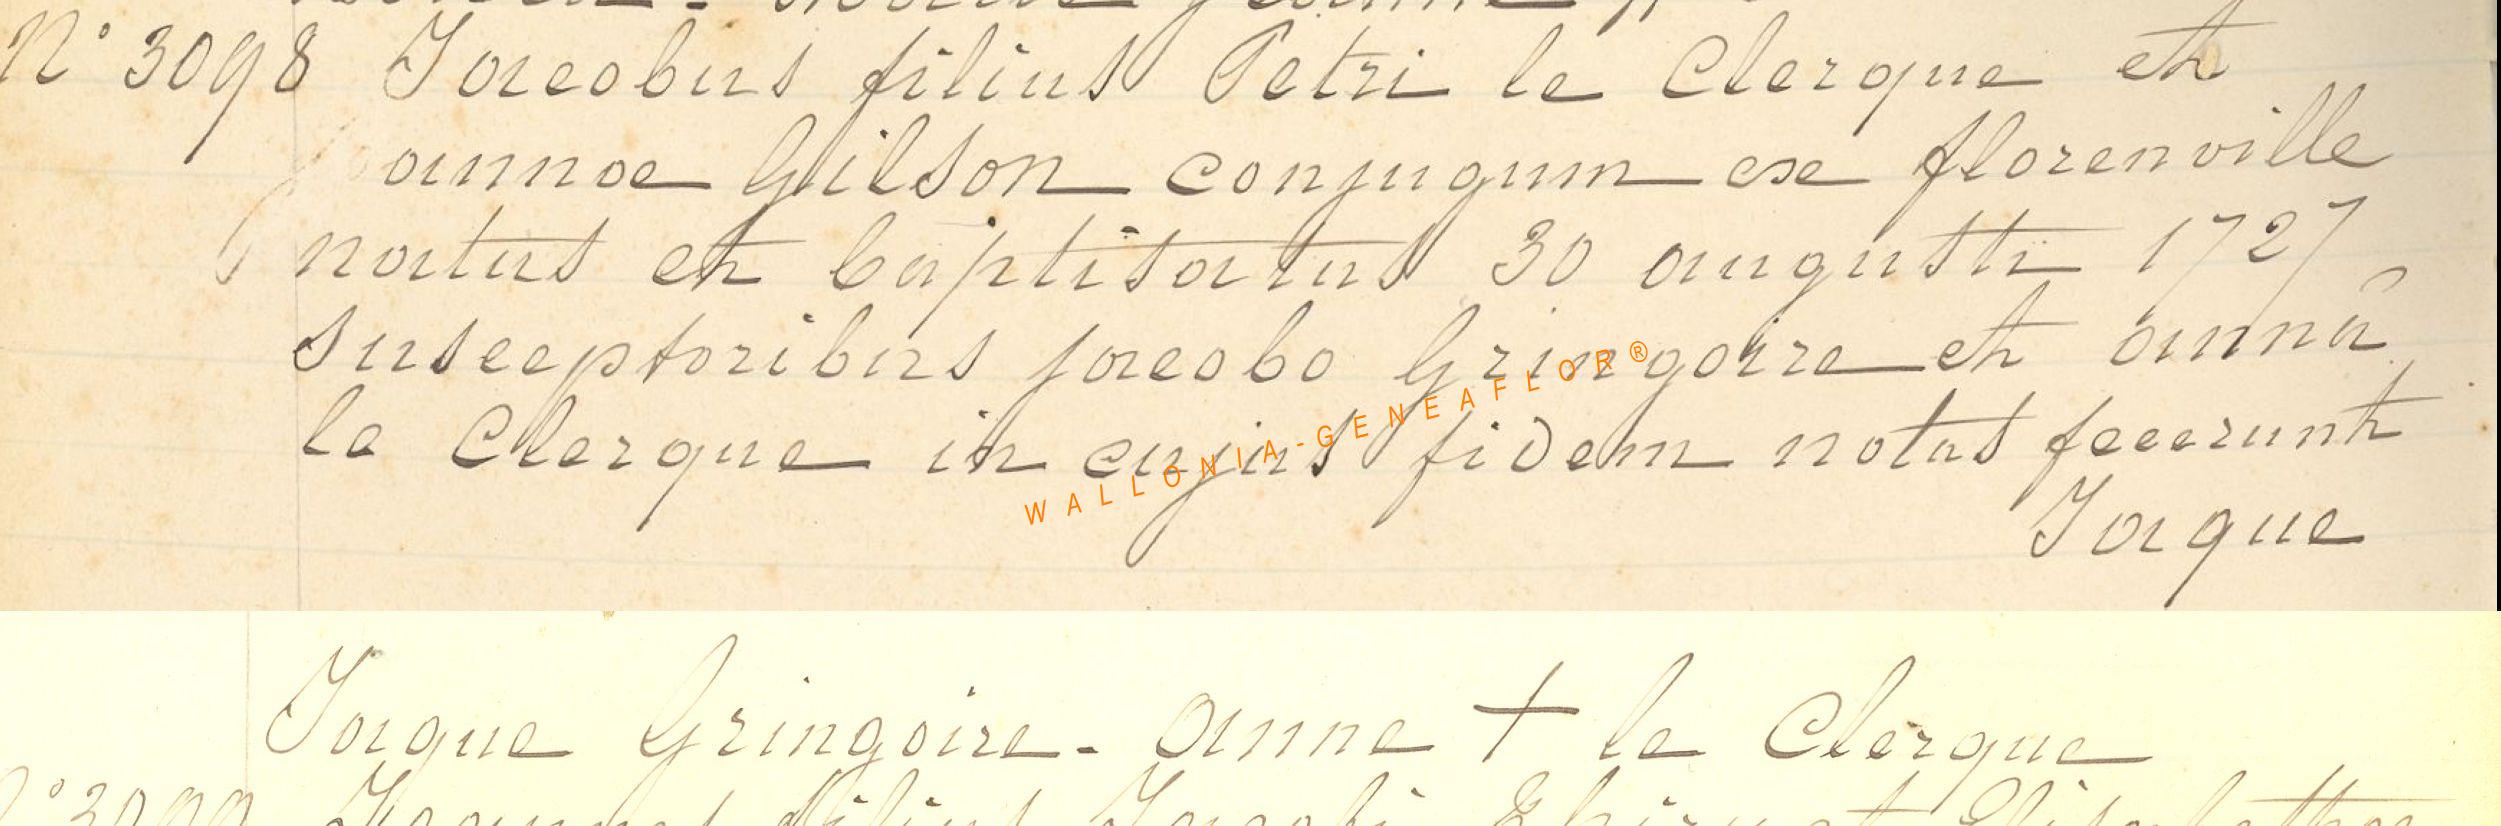 N° 3098 Jacobus filius Petri le Clerque et
joannae Gilson conjugum ex florenville
natus et baptisatus 30 augusti 1727
susceptoribus jacobo Gringoire et anna
le Clerque in cujus fidem notas fecerunt
Jaque
WALLONIA-GENEAFLOR®
Jaque Gringoire - anne + le Clerque
N° 3099 Joannes filius Jacobi